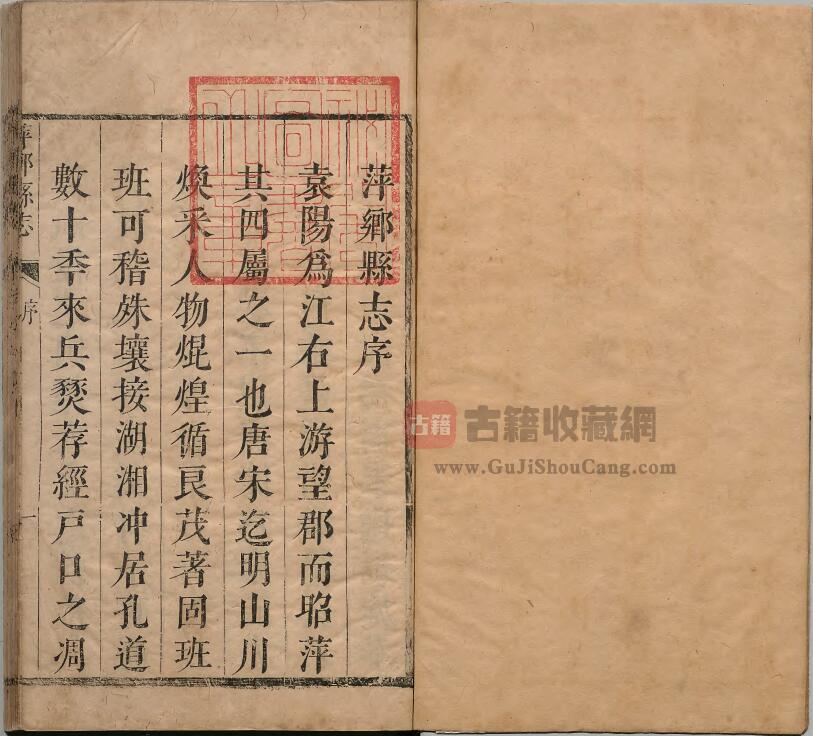 萍鄉縣志序
袁陽爲江右上游望郡而昭萍
其四屬之一也唐宋迄明山川
煥采人物焜煌循良茂著固班
班可稽殊壤接湖湘冲居孔道
數十秊來兵燹荐經戸口之凋
萍鄉縣志
序
一
古籍
古籍收藏網
www.GuJiShouCang.com